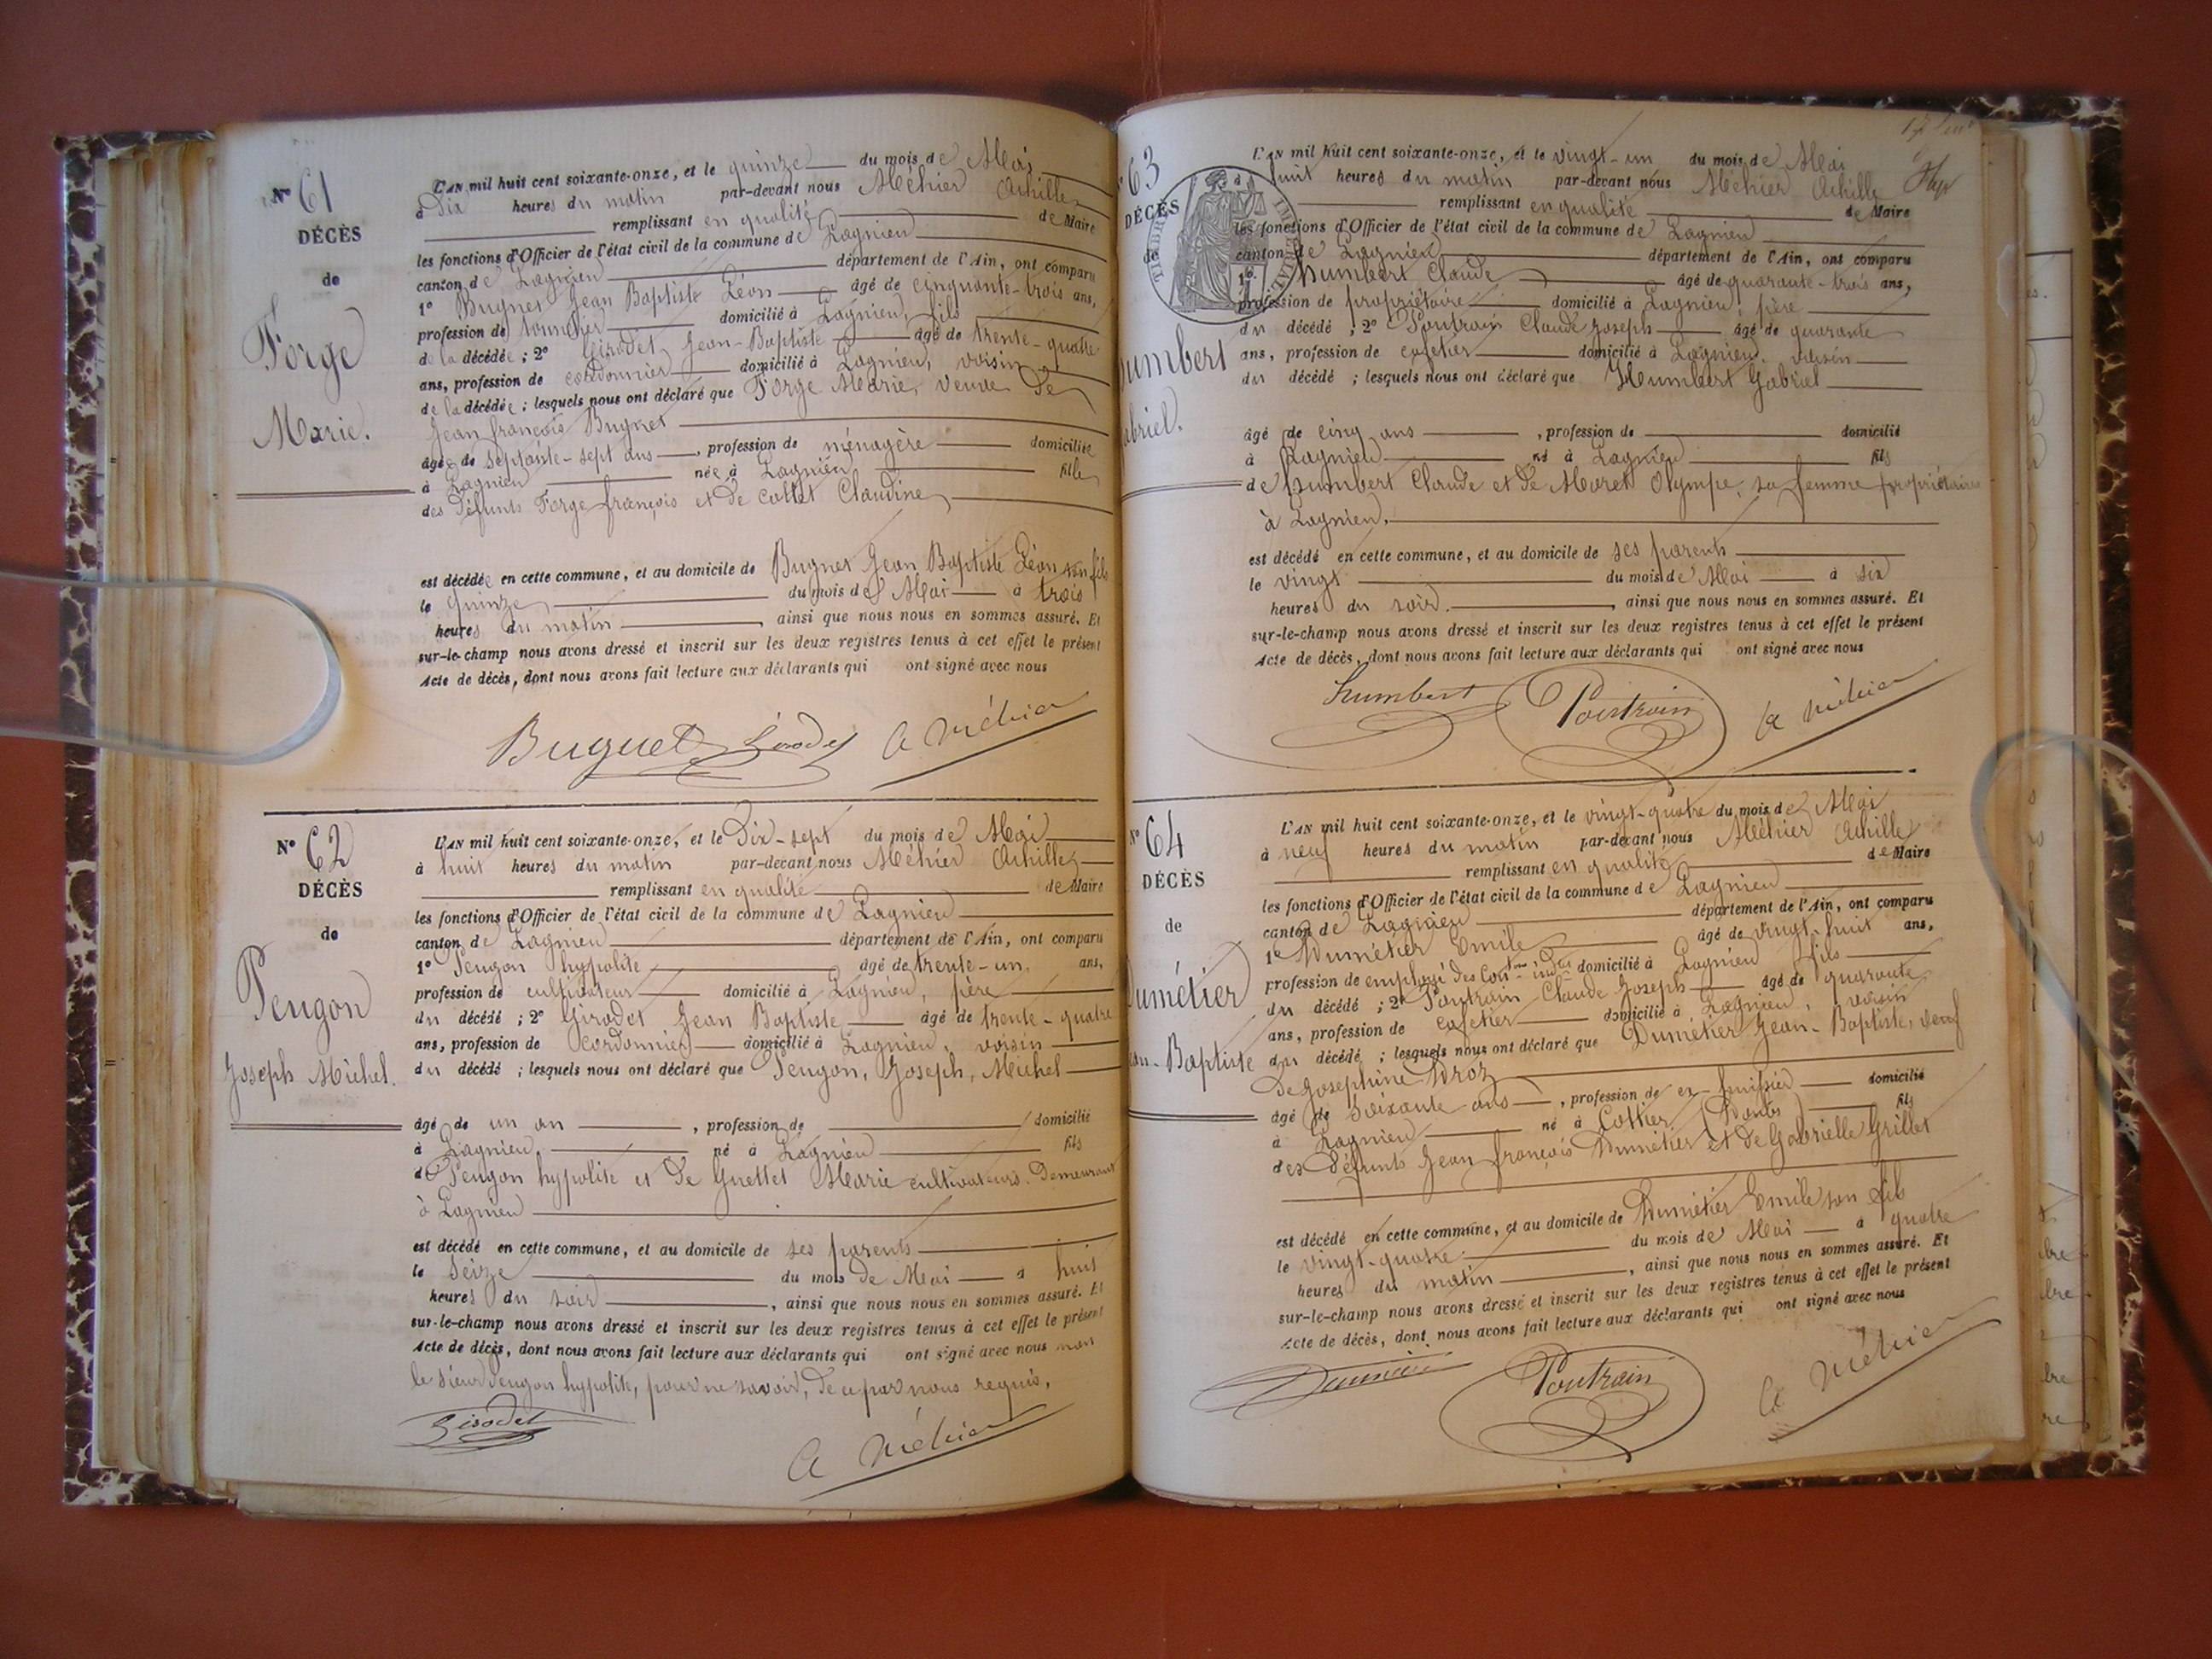 N° 61
DÉCÈS
de
Forge
Marie.
L'AN mil huit cent soixante-onze, et le quinze du mois de Mai
à Dix heures du matin par-devant nous Méhier Achille
remplissant en qualité de Maire
les fonctions d'Officier de l'état civil de la commune de Lagnieu
canton de Lagnieu département de l'Ain, ont comparu
1° Bugnet Jean Baptiste Léon âgé de cinquante-trois ans,
profession de domicilié à Lagnieu, fils
de la décédée ; 2° Girodet Jean-Baptiste âgé de trente-quatre
ans, profession de cordonnier domicilié à Lagnieu, voisin
de la décédée ; lesquels nous ont déclaré que Forge Marie, veuve de
Jean françois Bugnet
âgée de septante-sept ans, profession de ménagère domiciliée
à Lagnieu née à Lagnieu fille
des défunts Forge françois et de Collet Claudine
est décédée en cette commune, et au domicile de Bugnet Jean Baptiste Léon son fils
le quinze du mois de Mai à trois
heures du matin, ainsi que nous nous en sommes assuré. Et
sur-le-champ nous avons dressé et inscrit sur les deux registres tenus à cet effet le présent
Acte de décès, dont nous avons fait lecture aux déclarants qui ont signé avec nous
Buguet Girodet A Méhier
N° 62
DÉCÈS
de
Peugon
Joseph Michel.
L'AN mil huit cent soixante-onze, et le Dix-sept du mois de Mai
à huit heures du matin par-devant nous Méhier Achille
remplissant en qualité de Maire
les fonctions d'Officier de l'état civil de la commune de Lagnieu
canton de Lagnieu département de l'Ain, ont comparu
1° Peugon hypolite âgé de trente-un ans,
profession de cultivateur domicilié à Lagnieu, père
du décédé ; 2° Girodet Jean Baptiste âgé de trente-quatre
ans, profession de cordonnier domicilié à Lagnieu, voisin
du décédé ; lesquels nous ont déclaré que Peugon, Joseph, Michel
âgé de un an, profession de domicilié
à Lagnieu né à Lagnieu fils
de Peugon hypolite et de Guettet Marie cultivateurs. Demeurant
à Lagnieu
est décédé en cette commune, et au domicile de ses parents
le Seize du mois de Mai à huit
heures du soir, ainsi que nous nous en sommes assuré. Et
sur-le-champ nous avons dressé et inscrit sur les deux registres tenus à cet effet le présent
Acte de décès, dont nous avons fait lecture aux déclarants qui ont signé avec nous non
le sieur Peugon hypolite, pour ne savoir, de ce par nous requis,
Girodet A Méhier
63
DÉCÈS
de
umbert
abriel.
L'AN mil huit cent soixante-onze, et le vingt-un du mois de Mai
huit heures du matin par-devant nous Méhier Achille
remplissant en qualité de Maire
les fonctions d'Officier de l'état civil de la commune de Lagnieu
canton de Lagnieu département de l'Ain, ont comparu
1° humbert Claude âgé de quarante-trois ans,
profession de propriétaire domicilié à Lagnieu, père
du décédé ; 2° Poutrain Claude Joseph âgé de quarante
ans, profession de cafetier domicilié à Lagnieu, voisin
du décédé ; lesquels nous ont déclaré que Humbert Gabriel
âgé de cinq ans, profession de domicilié
à Lagnieu né à Lagnieu fils
de humbert Claude et de Moret Olympe, sa femme propriétaire
à Lagnieu,
est décédé en cette commune, et au domicile de ses parents
le vingt du mois de Mai à six
heures du soir, ainsi que nous nous en sommes assuré. Et
sur-le-champ nous avons dressé et inscrit sur les deux registres tenus à cet effet le présent
Acte de décès, dont nous avons fait lecture aux déclarants qui ont signé avec nous
humbert Poutrain A Méhier
N° 64
DÉCÈS
de
umétier
an-Baptiste
L'AN mil huit cent soixante-onze, et le vingt-quatre du mois de Mai
à neuf heures du matin par-devant nous Méhier Achille
remplissant en qualité de Maire
les fonctions d'Officier de l'état civil de la commune de Lagnieu
canton de Lagnieu département de l'Ain, ont comparu
1° Dumétier Emile âgé de vingt-huit ans,
profession de employé des Cont. ind. domicilié à Lagnieu fils
du décédé ; 2° Poutrain Claude Joseph âgé de quarante
ans, profession de cafetier domicilié à Lagnieu, voisin
du décédé ; lesquels nous ont déclaré que Dumétier Jean-Baptiste, veuf
de Josephine Droz
âgé de soixante ans, profession de ex-huissier domicilié
à Lagnieu né à Cottier (Doubs) fils
des défunts Jean françois Dumétier et de Gabrielle Grillet
est décédé en cette commune, et au domicile de Dumétier Emile son fils
le vingt-quatre du mois de Mai à quatre
heures du matin, ainsi que nous nous en sommes assuré. Et
sur-le-champ nous avons dressé et inscrit sur les deux registres tenus à cet effet le présent
Acte de décès, dont nous avons fait lecture aux déclarants qui ont signé avec nous
Poutrain A Méhier